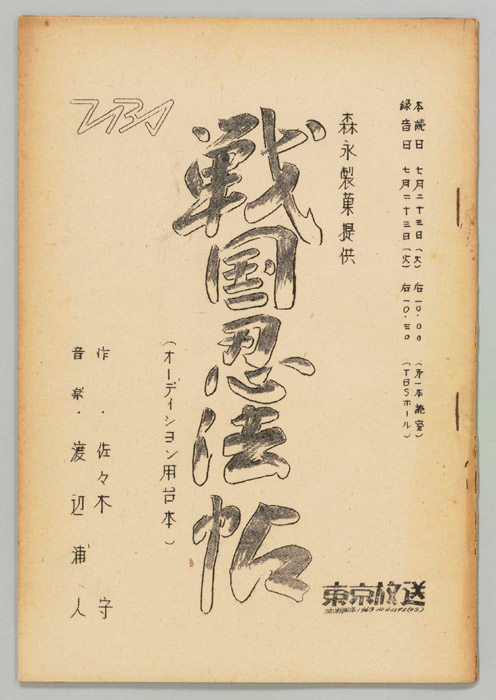 本読日 七月二十三日（火） 后一〇.〇〇 （第一本読室）
録音日 七月二十三日（火） 后一〇.三〇 （TBSホール）
森永製菓提供
戦国忍法帖
（オーディション用台本）
作・佐々木 守
音楽・渡辺浦人
TBS
東京放送